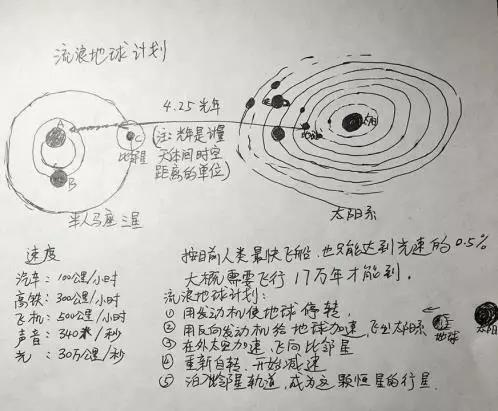 流浪地球计划
4.25光年
(注:光年是计量
天体间时空
距离的单位)
A
B
C
比邻星
半人马座三星
地球
太阳
太阳系
速度
汽车:100公里/小时
高铁:300公里/小时
飞机:500公里/小时
声音:340米/秒
光:30万公里/秒
按目前人类最快飞船,也只能达到光速的0.5%
大概需要飞行17万年才能到.
流浪地球计划:
①用发动机使地球停转.
②用反向发动机给地球加速,飞出太阳系
地球
太阳
③在外太空加速,飞向比邻星
④重新自转.开始减速
⑤泊入比邻星轨道,成为这颗恒星的行星.